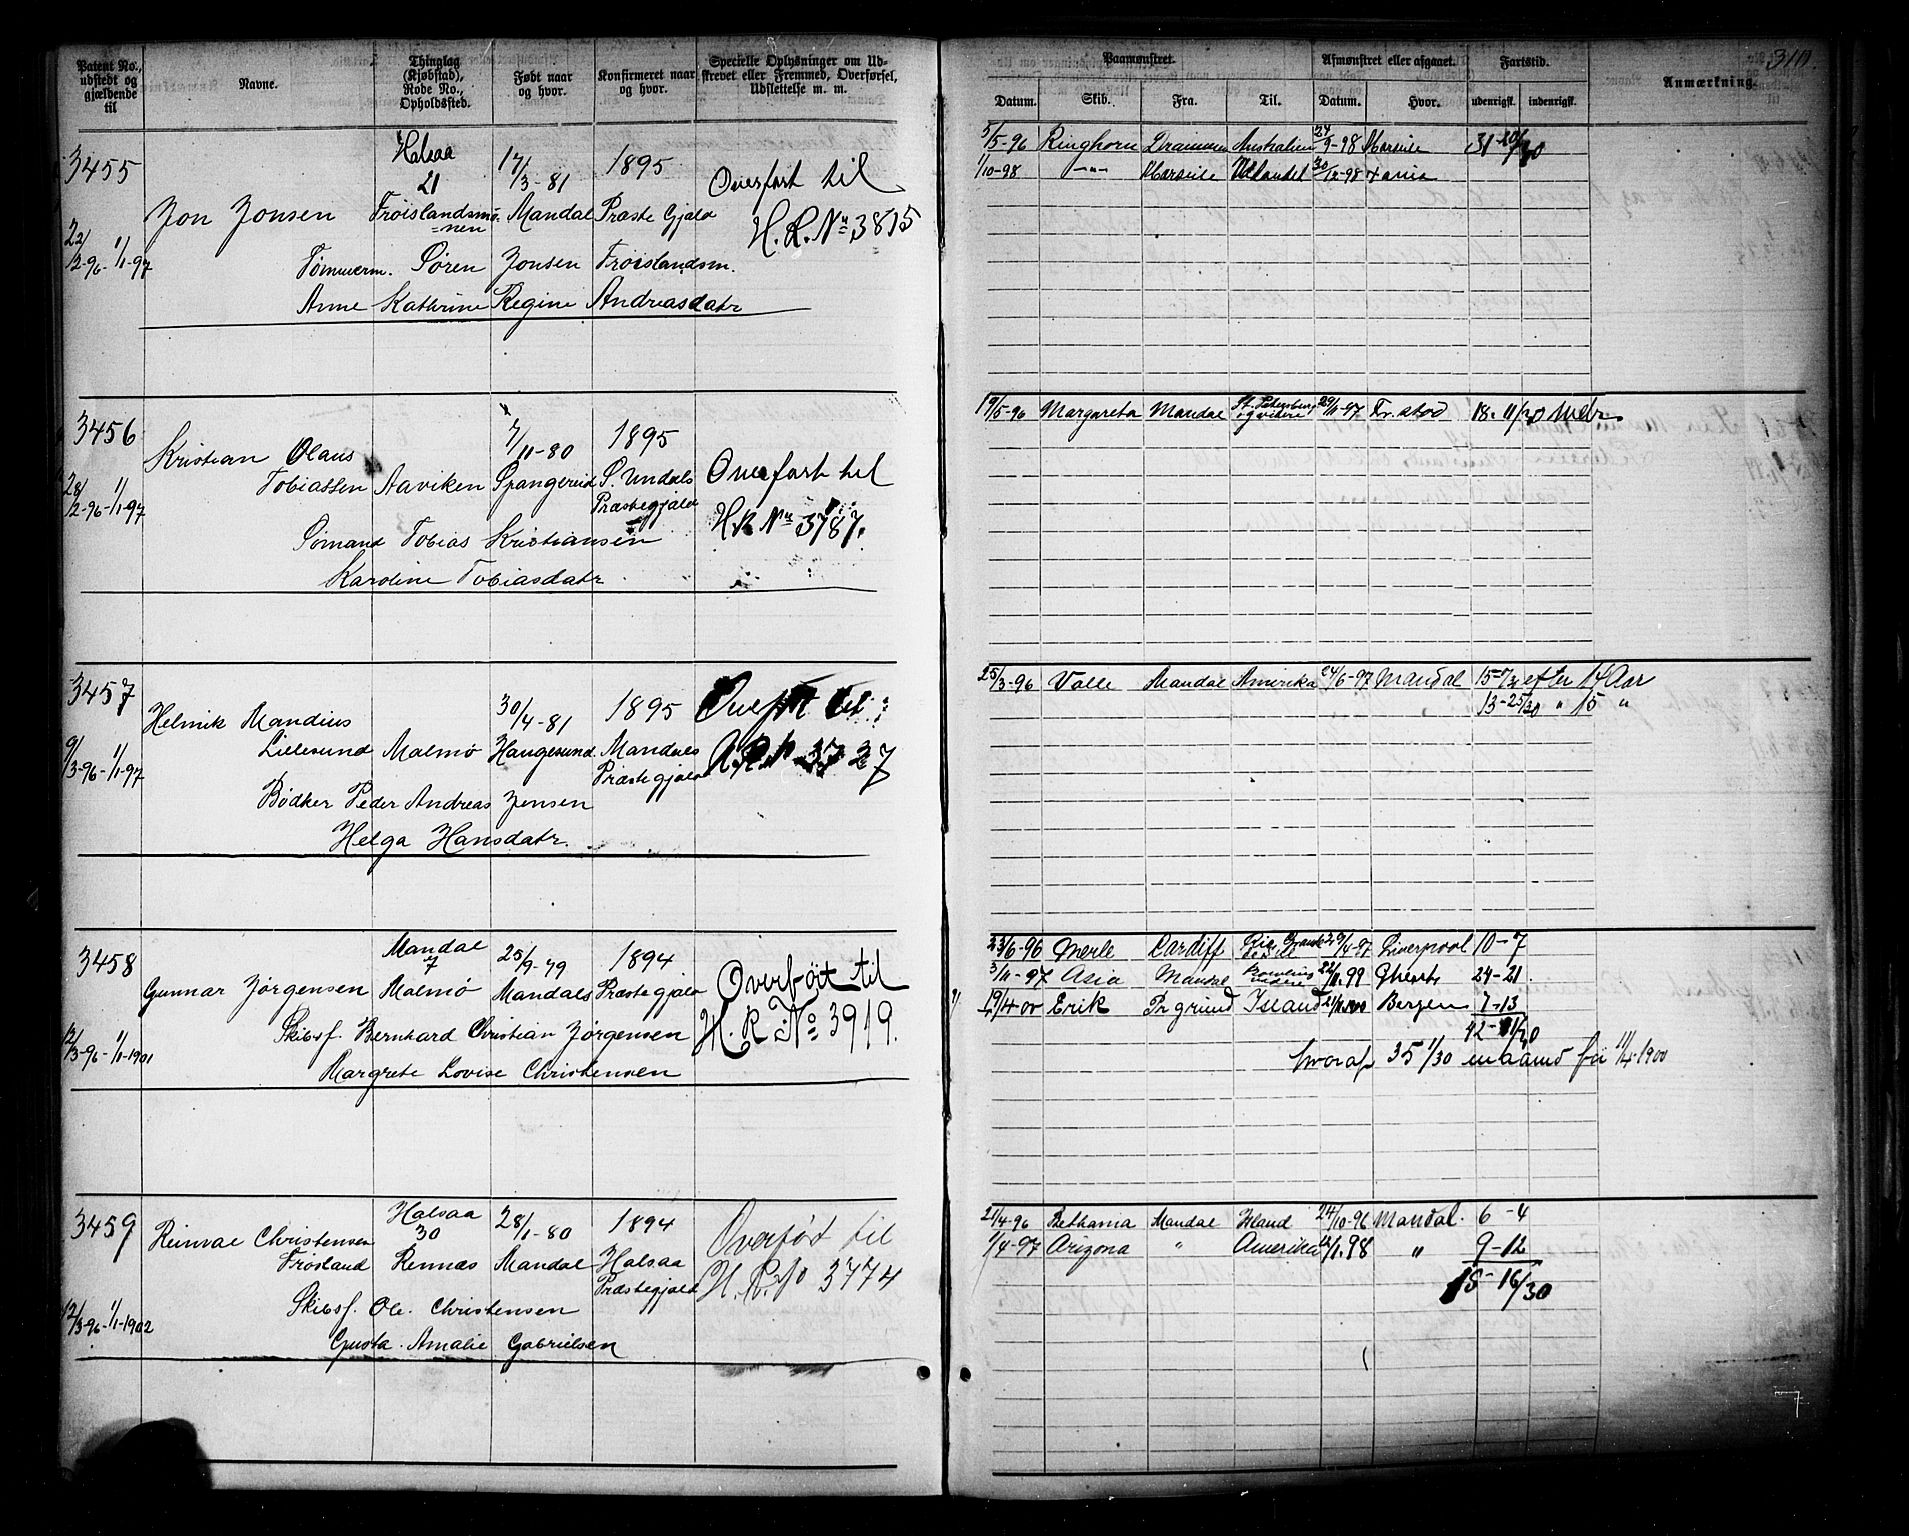 Patent No., udstedt og gjældende til
Navne.
Thinglag (Kjøbstad), Rode No., Opholdssteb.
Født naar og hvor.
Konfirmeret naar og hvor.
Specielle Oplysninger om Udskrevet eller Fremmed, Overførsel, Udslettelse m. m.
Paamønstret.
Afmønstret eller afgaaet.
Fartstid.
Anmærkning.
310.
Datum. Skib. Fra. Til. Datum. Hvor. udenrigsk. indenrigsk.
3455 Halsaa 17/3-81 1895 Overført til
21
Jon Jonsen Frøislandsmo= Mandal Præste Gjæld H. R. No 3815
=nen
22/2-96-1/1-97 Tømmerm. Søren Jonsen Frøislandsm.
Anne Kathrine Regine Andreasdatr
5/5-96 Ringhorn Drammen Australien 24/9-98 Marseile 31-20/30
1/10-98 -"- Marseile Udlandet 30/12-98
3456 7/11-80 1895
Kristian Olaus Overført til
Tobiassen Aaviken Spangereid S. Undals
28/2-96-1/1-97 Præstegjæld H.R No 3787.
Sømand Tobias Kristiansen
Karoline Tobiasdatr
19/5-96 Margareta Mandal St. Petersburg og videre 29/11-97 Fr.stad 18. 11/30 Mdr
3457 30/4-81 1895 Overført til
Helmik Mandius
Lillesund Malmø Haugesund Mandals 3727
9/3-96-1/1-97 Præstegjæld
Bødker Peder Andreas Jensen
Helga Hansdatr.
25/3-96 Valle Mandal Amerika 24/6-97 Mandal 15-7/30 efter 14 Aar
13-25/30 " 15 "
3458 Mandal 25/9-79 1894 Overført til
7
Gunnar Jørgensen Malmø Mandals Præstegjæld H. R No 3919.
12/3-96-1/1-1901 Skibsf. Bernhard Christian Jørgensen
Margrete Lovise Christensen
23/6-96 Merle Cardiff Rio Grande 29/4-97 Liverpool 10-7
3/11-97 Asia Mandal 22/11.99 Ghent 24-21
19/4 00 Erik Pr grund Island 21/11.00 Bergen 7-13
42-11/30
hvoraf 35 1/30 maaned før 11/4-1900
3459 Halsaa 28/1-80 1894 Overført til
30
Reinval Christensen
Frøsland Rennæs Mandal Halsaa H. R. No 3774
Præstegjæld
12/3-96-1/1-1902 Skibsf. Ole Christensen
Gusta Amalie Gabrielsen
21/4-96 Bethania Mandal Irland 24/10-96 Mandal. 6-4
1/4-97 Arizona " Amerika 12/1.98 " 9-12
15-16/30